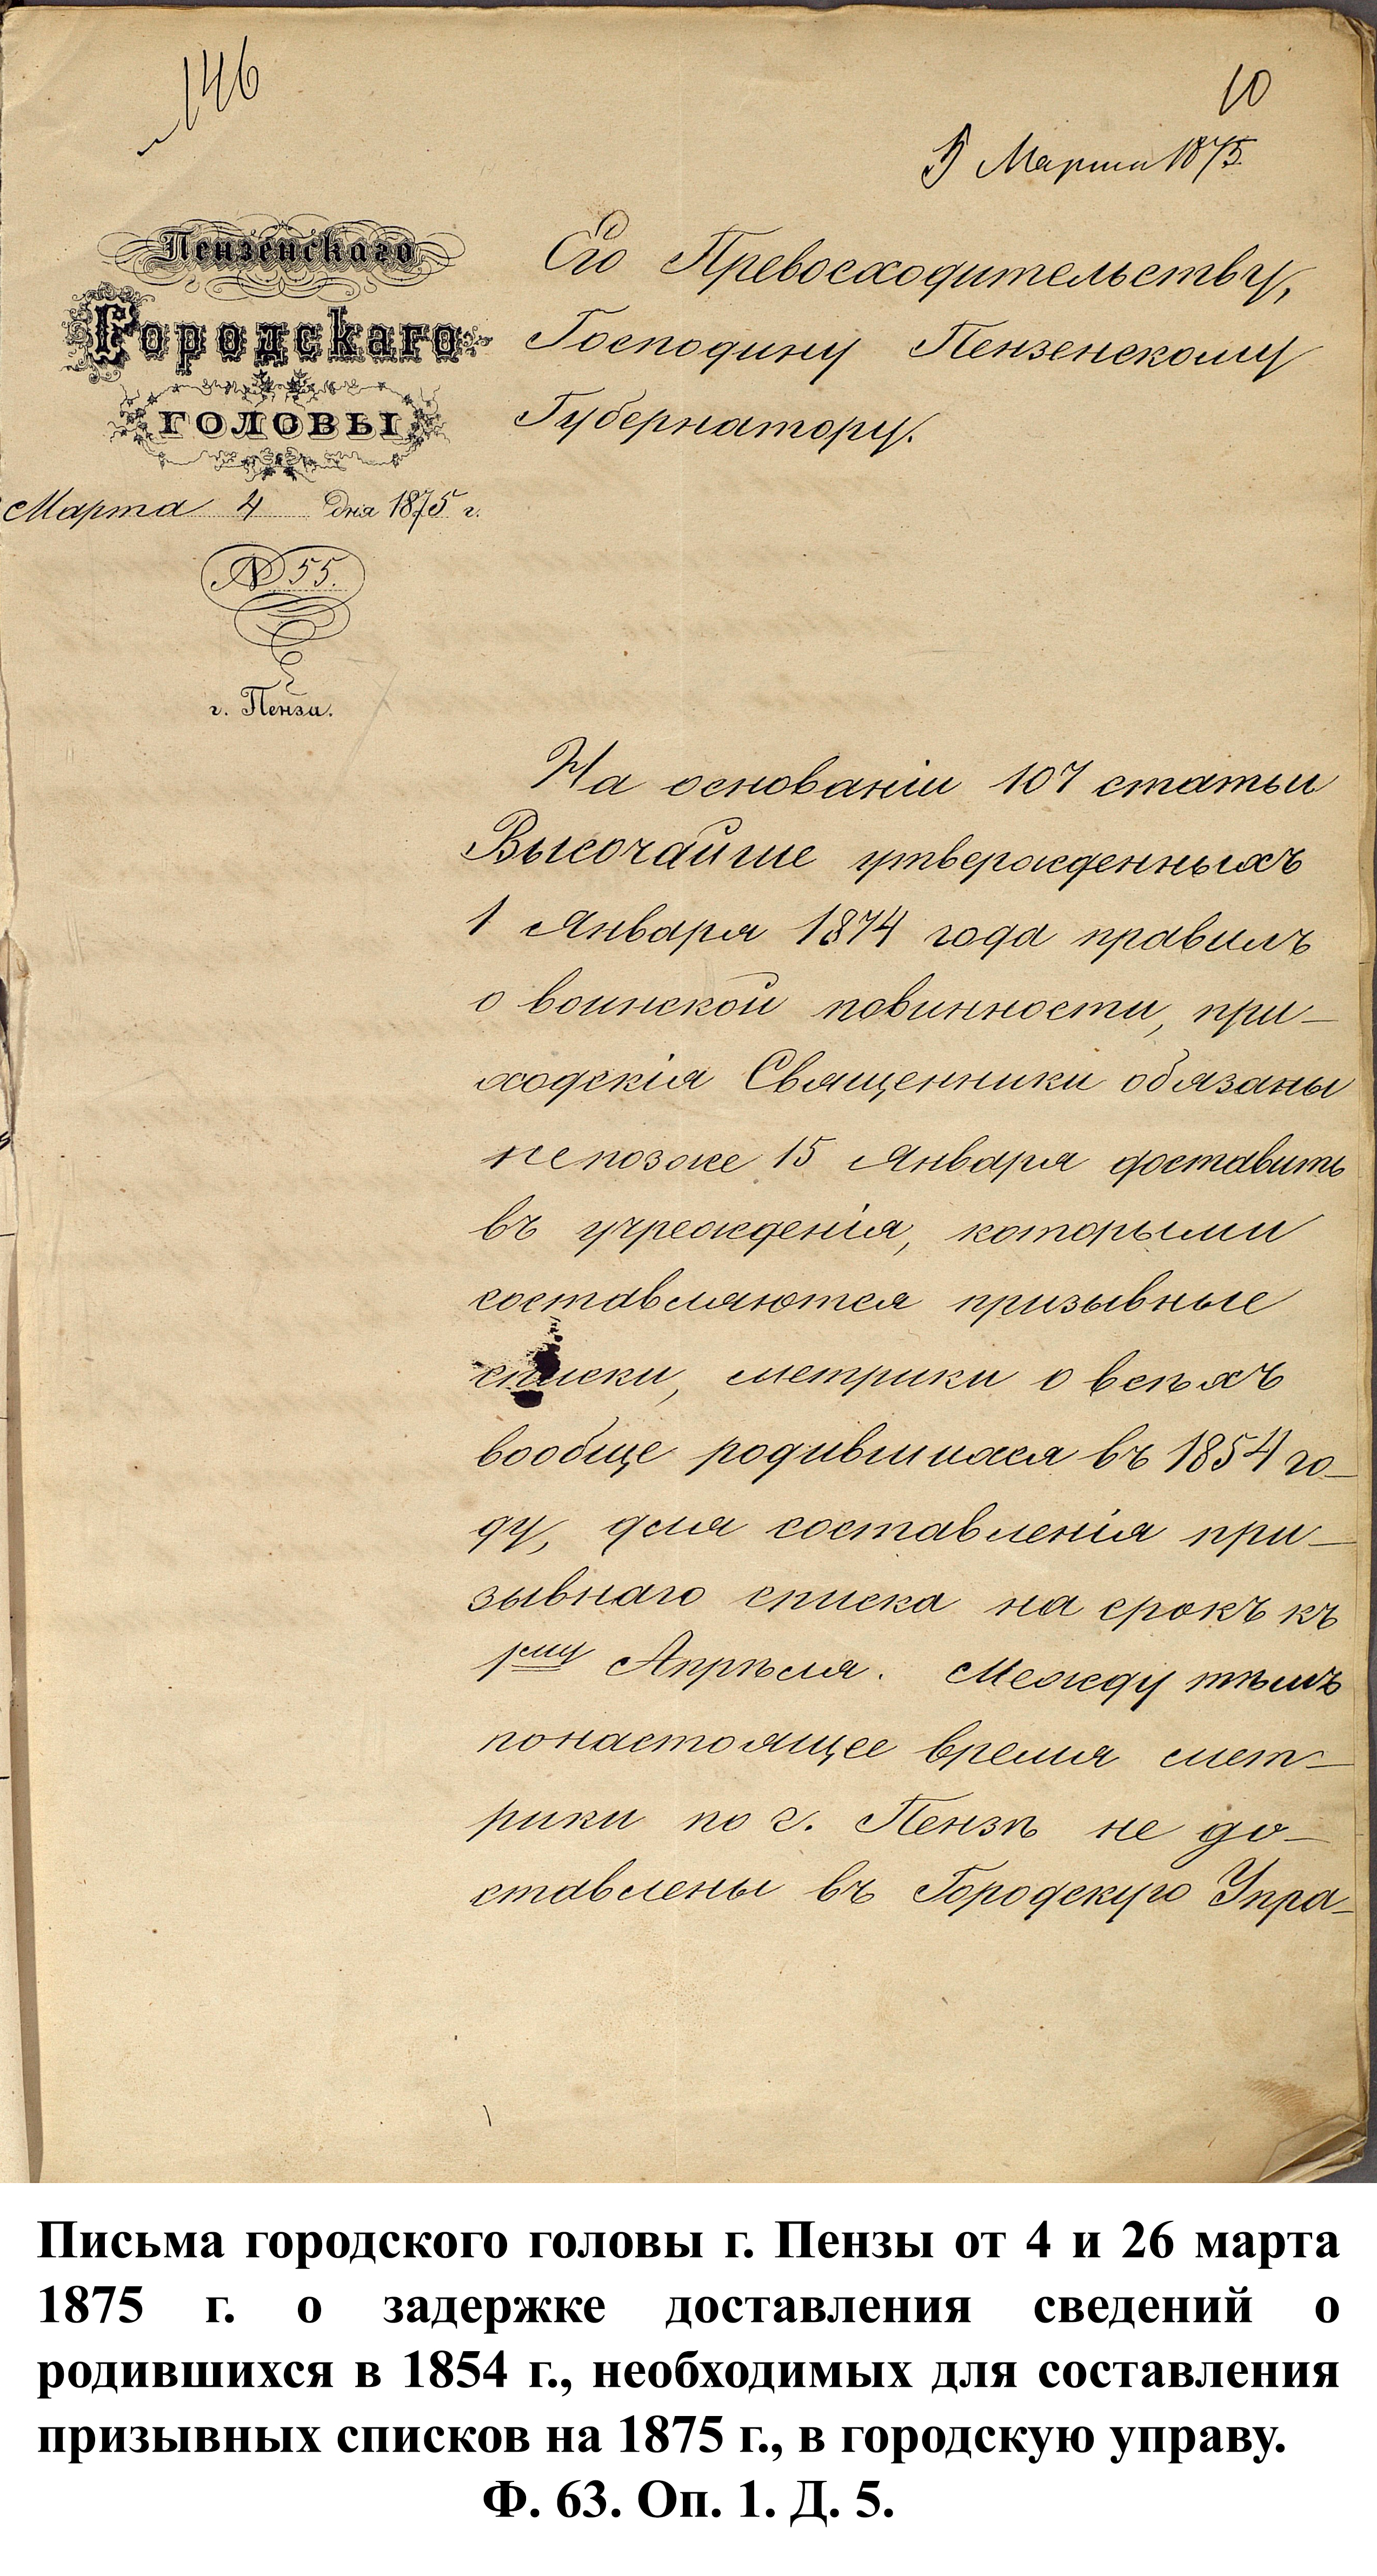 146
10
5 Марта 1875
Пензенскаго
Городскаго
ГОЛОВЫ
Марта 4 дня 1875 г.
№ 55.
г. Пенза.
Его Превосходительству,
Господину Пензенскому
Губернатору.
На основаніи 107 статьи
Высочайше утвержденныхъ
1 Января 1874 года правилъ
о воинской повинности, при-
ходскія Священники обязаны
не позже 15 Января доставить
въ учрежденія, которыми
составляются призывные
списки, метрики о всѣхъ
вообще родившихся въ 1854 го-
ду, для составленія при-
зывнаго списка на срокъ къ
1му Апрѣля. Между тѣмъ
по настоящее время мет-
рики по г. Пензѣ не до-
ставлены въ Городскую Упра-
Письма городского головы г. Пензы от 4 и 26 марта
1875 г. о задержке доставления сведений о
родившихся в 1854 г., необходимых для составления
призывных списков на 1875 г., в городскую управу.
Ф. 63. Оп. 1. Д. 5.